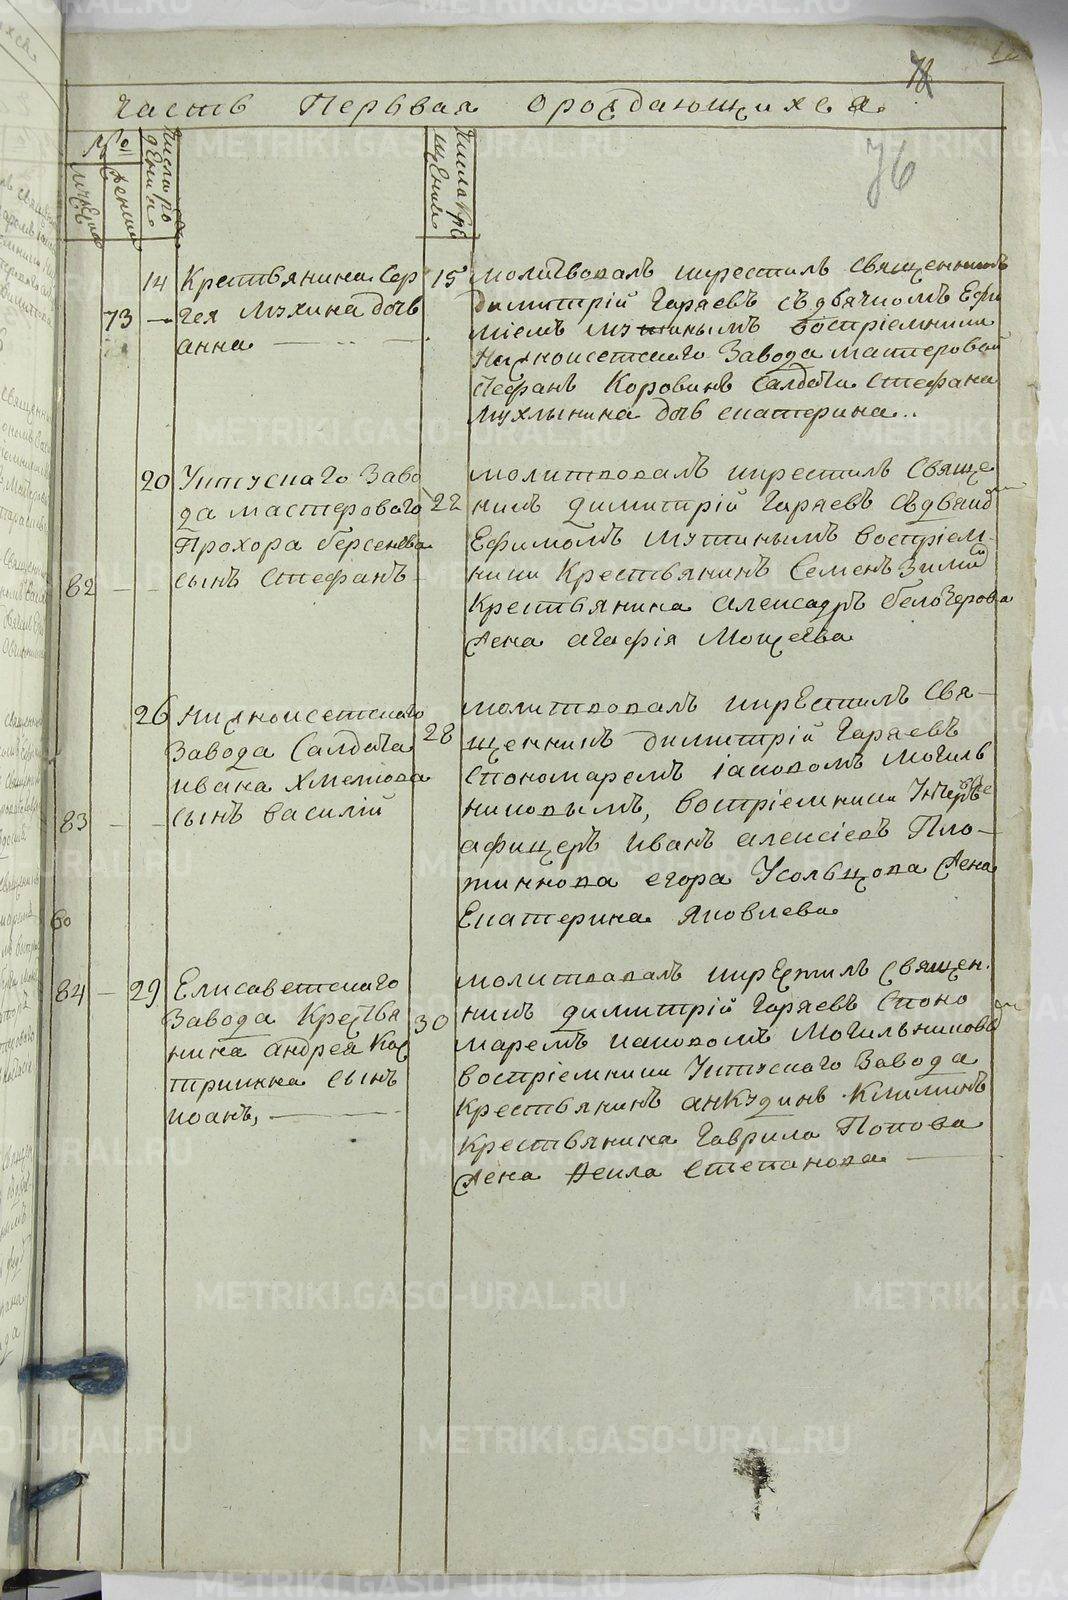 76
Часть Первая ораждающихся
№
мужеска
женска
Числа рождения
Числа крещения
14 Крестьянина Сер
73 — гея Мухина дочь
анна
15 молитвовалъ икрестилъ священникъ
димитрій Гаряевъ съдьячкомъ Ефи
міемъ Мутинымъ воспріемники
Нижноисетскаго Завода мастеровой
Стефанъ Коровинъ Салдата Стефана
Мухлынина дочь екатерина..
20 Уктускаго Заво
да мастероваго
Прохора берсенева
82 — — сынъ Стефанъ
22 молитвовалъ икрестилъ Свяще
никъ димитрій Гаряевъ съдьячк
Ефимомъ Мутинымъ воспріем-
ники Крестьянинъ Семенъ Зимин
Крестьянина Александръ белочерова
жена агафія Мокеева
26 нижноисетскаго
Завода Салдата
ивана Хмелюва
83 — — сынъ василій
28 молитвовалъ икрестилъ Свя-
щенникъ димитрій Гаряевъ
спономаремъ іаковомъ Могиль
никовымъ, воспріемники
афицеръ иванъ алексіевъ Пло-
тникова егора Усольцова жена
Екатерина яковлева
60
84 — 29 Елисаветскаго
Завода Крестья
нина андрея Кос
тримина сынъ
иоанъ,
30 молитвовалъ икрестилъ священ.
никъ димитрій Гаряевъ споно
маремъ иаковомъ Могильниково
воспріемники Уктускаго Завода
Крестьянинъ анкудинъ Климинъ
Крестьянина Гаврила Попова
жена Степанова
METRIKI.GASO-URAL.RU